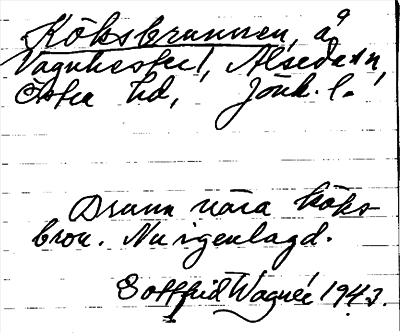 Köksbrunnen, å
Vagnhester!, Alseda sn,
Östra hd, Jönk. l.
Brunn nära köks-
bron. Nu igenlagd.
Gottfrid Wagnér 1943.